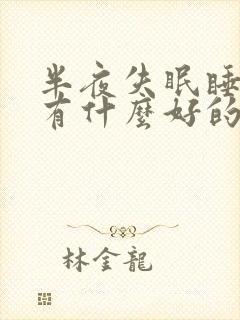 半夜失眠睡
有什麼好的
林金龍